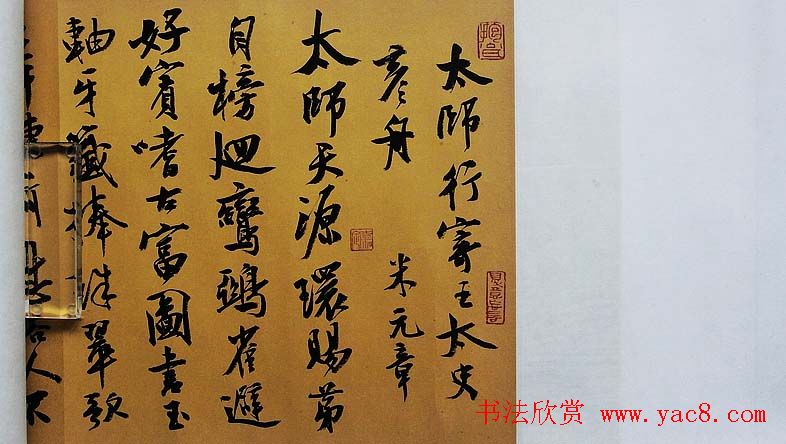 太師行寄王太史
彥舟 米元章
太師天源環賜第
月榜迴鸞鵄雀避
好賓嗜古富圖書玉
軸牙籤捧珠翠歌
人不
书法欣赏 www.yac8.com